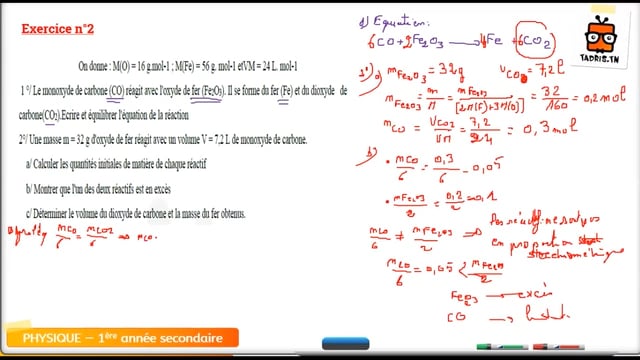 Exercice n°2
On donne : M(O) = 16 g.mol-1 ; M(Fe) = 56 g. mol-1 etVM = 24 L. mol-1
1 °/ Le monoxyde de carbone (CO) réagit avec l'oxyde de fer (Fe₂O₃). Il se forme du fer (Fe) et du dioxyde de
carbone(CO₂).Ecrire et équilibrer l'équation de la réaction
2°/ Une masse m = 32 g d'oxyde de fer réagit avec un volume V = 7,2 L de monoxyde de carbone.
a/ Calculer les quantités initiales de matière de chaque réactif
b/ Montrer que l'un des deux réactifs est en excès
c/ Déterminer le volume du dioxyde de carbone et la masse du fer obtenus.
nCO/6 = nCO2/6 => nCO
1) Equation:
6CO+2Fe₂O₃ → 4Fe + 6CO₂
a) mFe₂O₃ = 32g VCO = 7,2 L
nFe₂O₃ = m/M = mFe₂O₃/[2M(F)+3M(O)] = 32/160 = 0,2 mol
nCO = VCO/VM = 7,2/24 = 0,3 mol
b) • nCO/6 = 0,3/6 = 0,05
• nFe2O3/2 = 0,2/2 = 0,1
nCO/6 ≠ nFe2O3/2 =>
en proportion stœchiométrique
nCO/6 = 0,05 < nFe2O3/2
Fe₂O₃ → excès
CO →
TADRIS.TN
PHYSIQUE – 1ère année secondaire